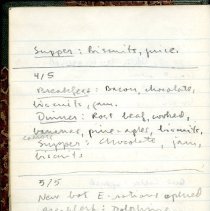 Supper: Biscuits, juice.
4/5
Breakfast: Bacon, chocolate,
biscuits, jam.
Dinner: Roast beef, cooked,
bananas, pine-apples, biscuits,
Supper: chocolate, jam,
biscuits
5/5
New box E-rations opened
Breakfast: